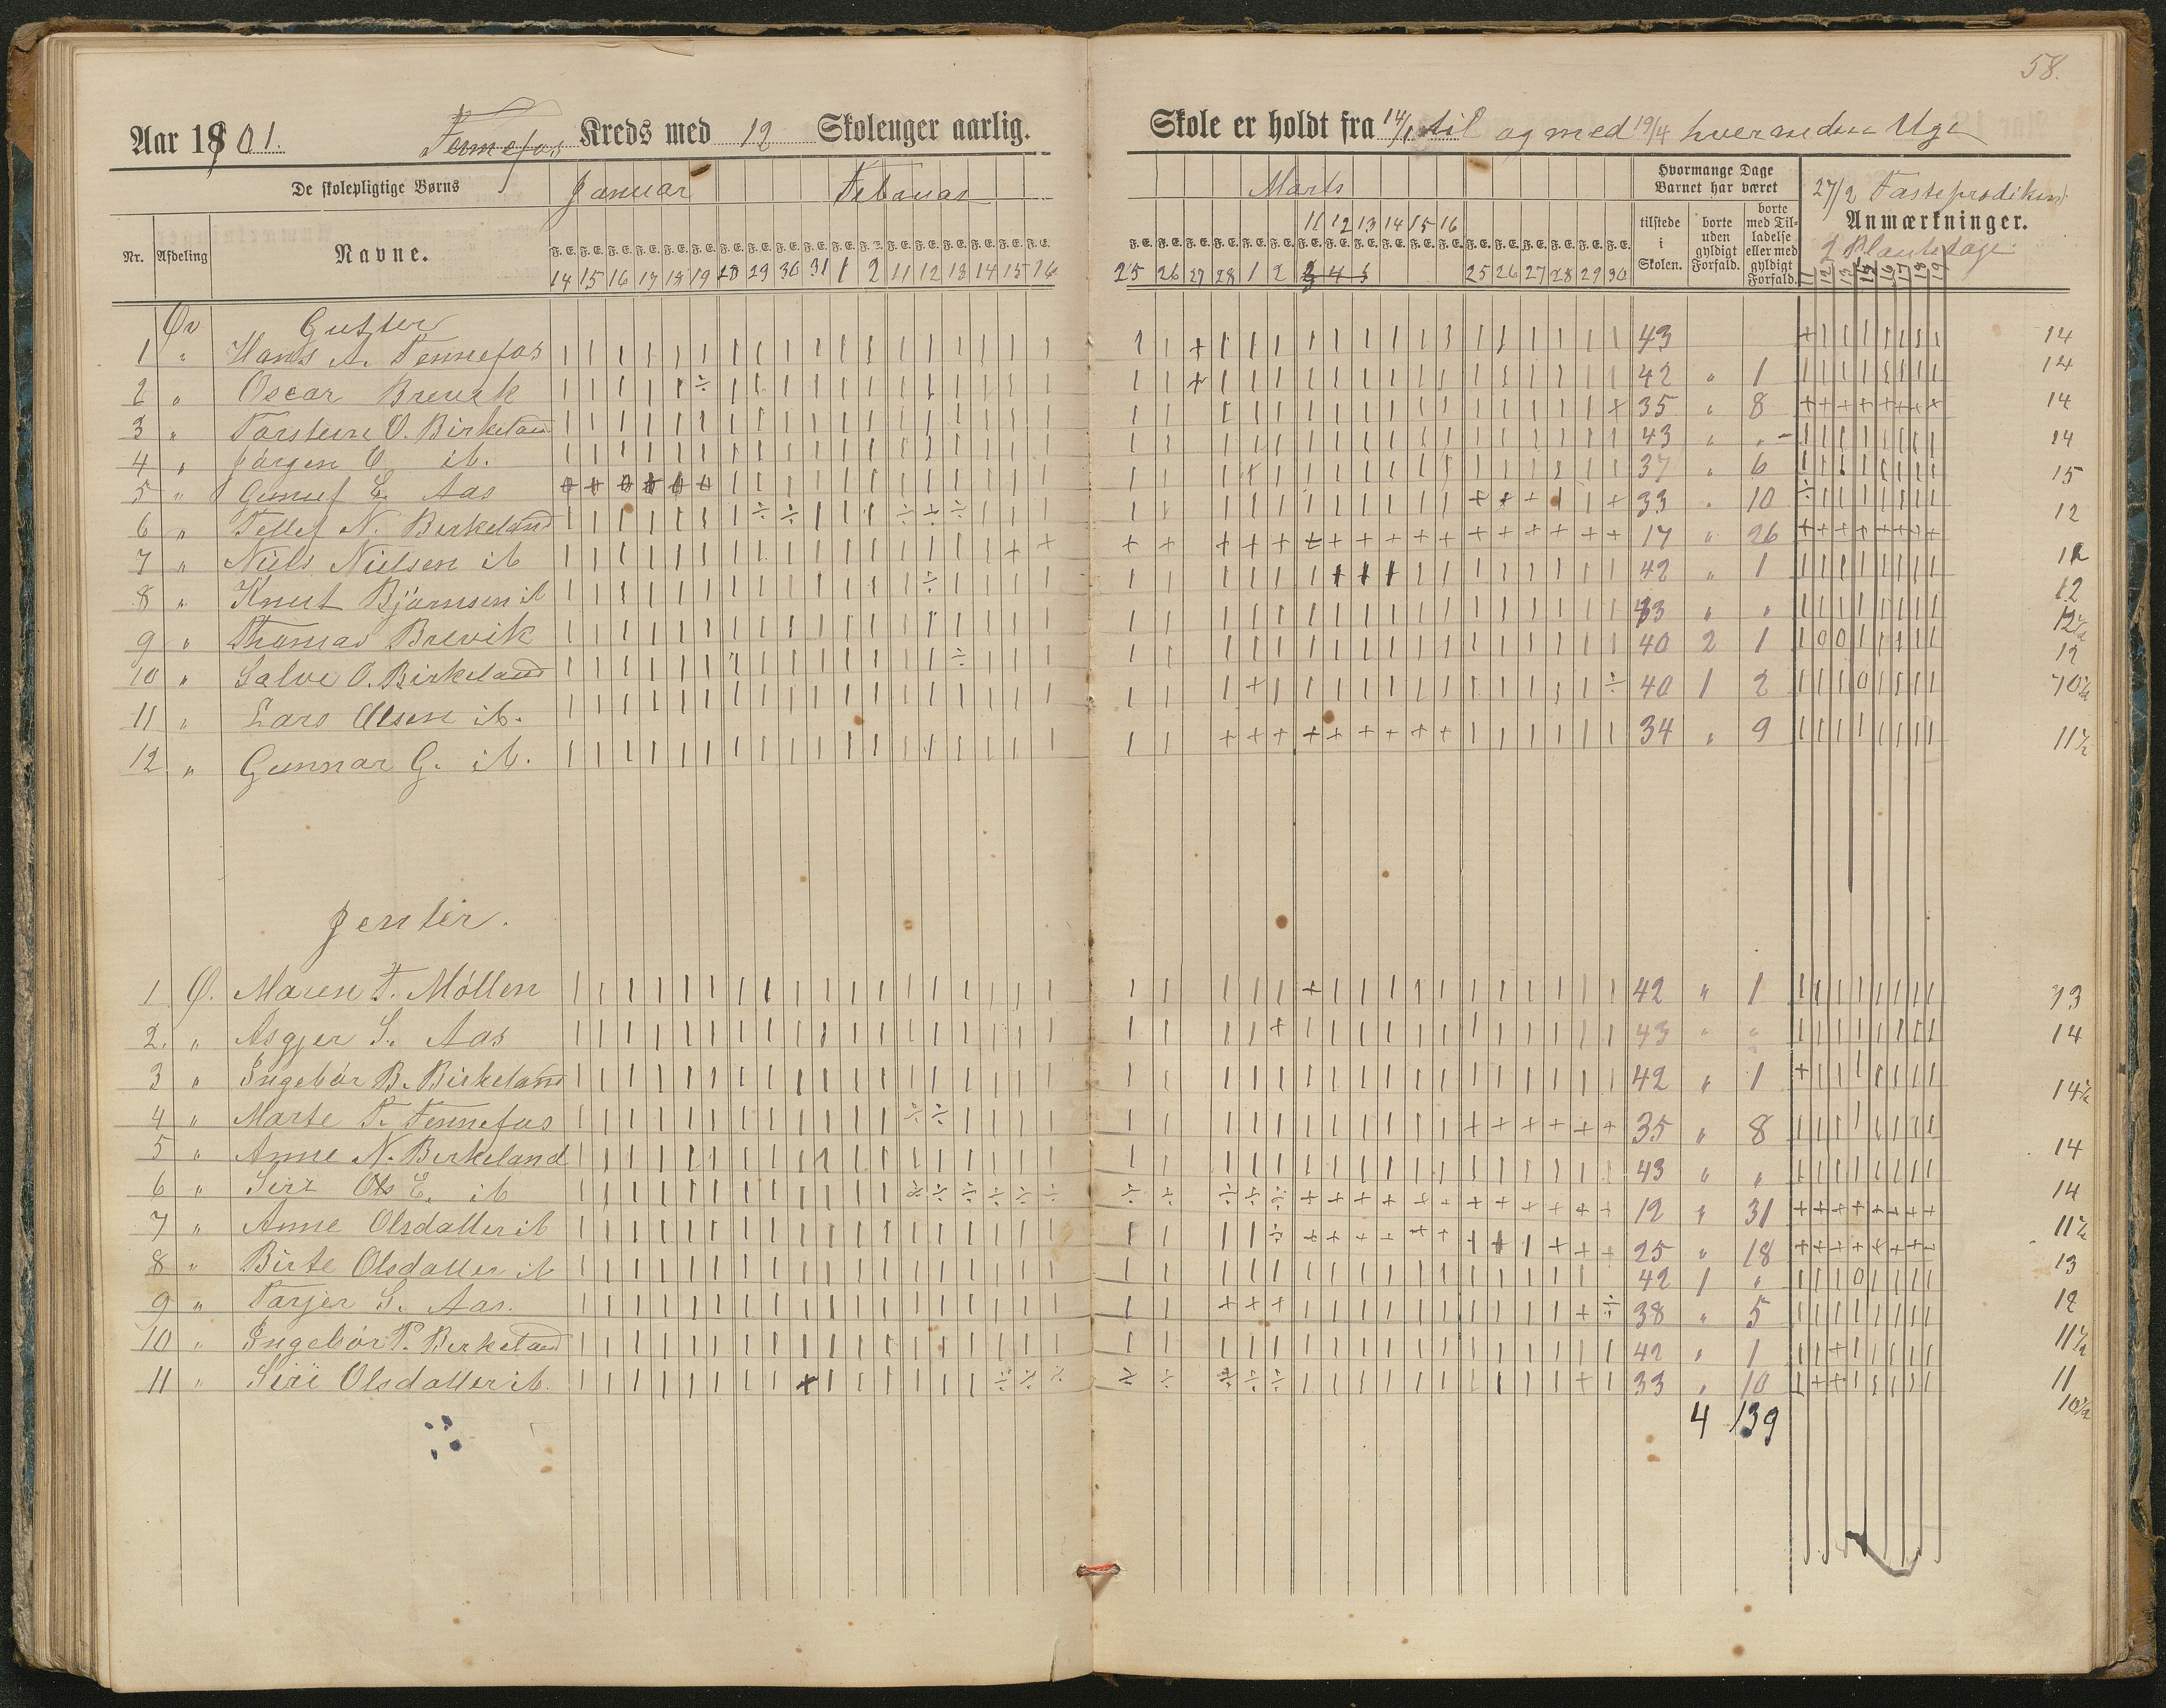 58.
Aar 1901. Tennefos Kreds med 12 Skoleuger aarlig. Skole er holdt fra 14/1 til og med 19/4 hver anden Uge
De skolepligtige Børns Januar Februar Marts Hvormange Dage Barnet har været 27/2 Fasteprædiken
Nr. Afdeling Navne. tilstede i Skolen. borte uden gyldigt Forfald. borte med Tilladelse eller med gyldigt Forfald. Anmærkninger.
2 Plantedage
11 12 13 14 15 16
14 15 16 17 18 19 28 29 30 31 1 2 11 12 13 14 15 16 25 26 27 28 1 2 3 4 5 25 26 27 28 29 30 11 12 13 15 16 17 18 19
Øv Gutter
1 " Hans A. Tennefos 43 14
2 " Oscar Brevik 42 " 1 14
3 " Torstein O. Birkeland 35 " 8 14
4 " Jørgen O ib. 43 " " 14
5 " Gunuf E. Aas 37 " 6 15
6 " Tellef N. Birkeland 33 " 10 12
7 " Niels Nielsen ib 17 " 26 12
8 " Knut Bjørnsen ib 42 " 1 12
9 " Thomas Brevik 43 " " 12 1/2
10 " Salve O. Birkeland 40 2 1 12
11 " Lars Olsen ib. 40 1 2 10 1/2
12 " Gunnar G. ib. 34 " 9 11 1/2
Jenter.
1 Ø. Maren T. Möllen 42 " 1 13
2. " Asgjer S. Aas 43 " " 14
3 " Ingebor B. Birkeland 42 " 1 14 1/2
4 " Marte T. Tennefos 35 " 8 14
5 " Anne N. Birkeland 43 " " 14
6 " Siri E. ib 12 " 31 11 1/2
7 " Anne Olsdatter ib 25 " 18 13
8 " Birte Olsdatter ib 42 1 " 12
9 " Torjer S. Aas. 38 " 5 11 1/2
10 " Ingebor T. Birkeland 42 " 1 11
11 " Siri Olsdatter ib. 33 " 10 10 1/2
4 139